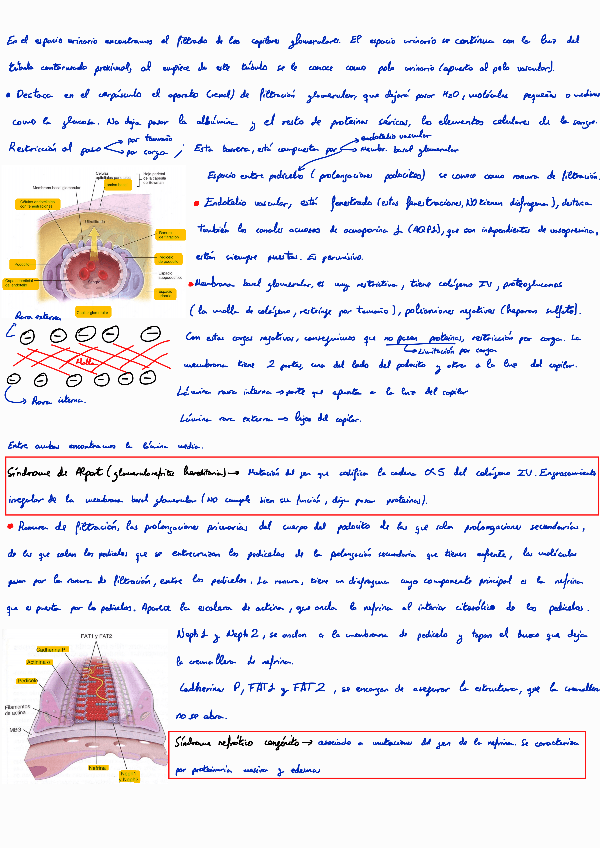 En el espacio urinario encontramos el filtrado de los capilares glomerulares. El espacio urinario se continua con la luz del
túbulo contorneado proximal, al empiece de este túbulo se le conoce como polo urinario (opuesto al polo vascular).
• Destaca en el corpúsculo el aparato (renal) de filtración glomerular, que dejará pasar H2O, moléculas pequeñas o medianas
como la glucosa. No deja pasar la albúmina y el resto de proteínas séricas, los elementos celulares de la sangre.
Restricción al paso por tamaño por carga ; Esta barrera, está compuesta por endotelio vascular Membr. basal glomerular
Espacio entre pedicelos (prolongaciones podocitos) se conoce como ranura de filtración.
• Endotelio vascular, está fenestrado (estas fenestraciones, NO tienen diafragma), destaca
también los canales acuosos de acuaporina 1 (AQP1), que son independientes de vasopresina,
están siempre puestas. Es permisivo.
• Membrana basal glomerular, es muy restrictiva, tiene colágeno IV, proteoglucanos
(la malla de colágeno, restringe por tamaño), polianiones negativos (heparan sulfato).
Con estas cargas negativas, conseguimos que no pasen proteínas, restricción por carga. La
Limitación por carga
membrana tiene 2 partes, una del lado del podocito y otra a la luz del capilar.
Lámina rara interna → parte que apunta a la luz del capilar
Lámina rara externa → lejos del capilar.
Membrana basal glomerular
Hoja parietal de la cápsula de Bowman
Pedicelo
Rara externa
Malla
Rara interna.
Entre ambas encontramos la lámina media.
Síndrome de Alport (glomerulonefritis hereditaria) → Mutación del gen que codifica la cadena α5 del colágeno IV. Engrosamiento
irregular de la membrana basal glomerular (NO cumple bien su función, deja pasar proteínas).
• Ranura de filtración, las prolongaciones primarias del cuerpo del podocito de las que salen prolongaciones secundarias,
de las que salen los pedicelos que se entrecruzan los pedicelos de la prolongación secundaria que tienen enfrente, las moléculas
pasan por la ranura de filtración, entre los pedicelos. La ranura, tiene un diafragma cuyo componente principal es la nefrina
que es puesta por los pedicelos. Aparece la escalera de actina, que ancla la nefrina al interior citosólico de los pedicelos.
Neph1 y Neph2, se anclan a la membrana de pedicelo y tapan el hueco que deja
la cremallera de nefrina.
Cadherina P, FAT1 y FAT2, se encargan de asegurar la estructura, que la cremallera
no se abra.
FAT1 y FAT2
Cadherina P
Pedicelo
Filamentos de actina
MBG
Nefrina
Síndrome nefrótico congénito → asociado a mutaciones del gen de la nefrina. Se caracteriza
por proteinuria masiva y edemas